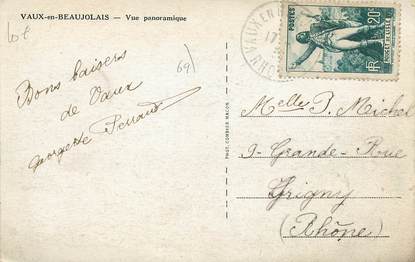 VAUX-en-BEAUJOLAIS — Vue panoramique
69)
Bons baisers
de Vaux
Georgette
PHOT. COMBIER MACON
POSTES
RF
Melle P. Michel
9 - Grande - Rue
Grigny
(Rhône)